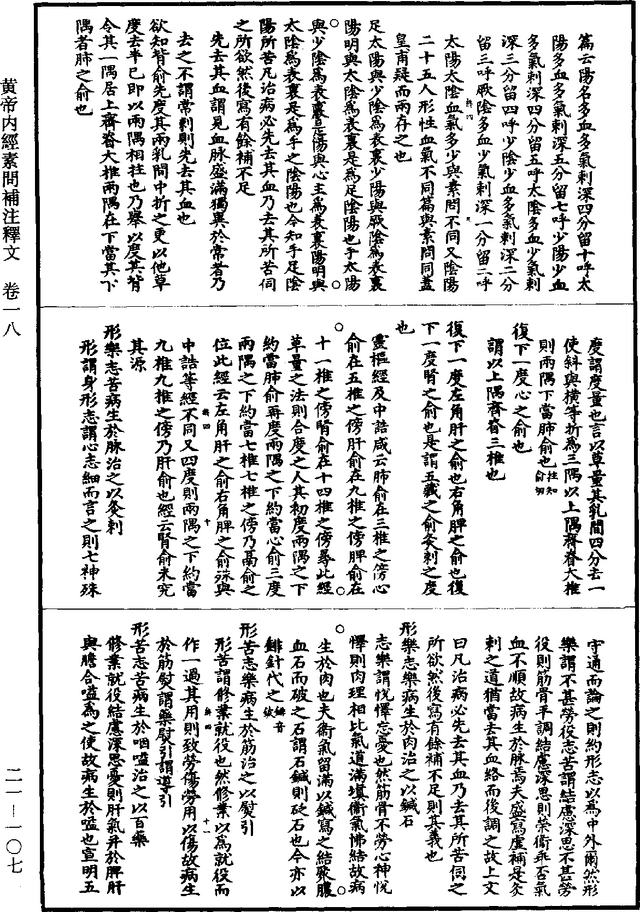 黄帝内經素問補注釋文　卷一八
二一—一〇七
篇云陽名多血多氣刺深四分留十呼太
陽多血多氣刺深五分留七呼少陽少血
多氣刺深四分留五呼太陰多血少氣刺
深三分留四呼少陰少血多氣刺深二分
留三呼厥陰多血少氣刺深一分留二呼
太陽太陰血氣多少與素問不同又陰陽
二十五人形性血氣不同篇與素問同蓋
皇甫疑而兩存之也
足太陽與少陰為表裏少陽與厥陰為表裏
陽明與太陰為表裏是為足陰陽也手太陽
與少陰為表裏少陽與心主為表裏陽明與
太陰為表裏是為手之陰陽也今知手足陰
陽所苦凡治病必先去其血乃去其所苦伺
之所欲然後寫有餘補不足
先去其血謂見血脉盛滿獨異於常者乃
去之不謂常刺則先去其血也
欲知背俞先度其兩乳間中折之更以他草
度去半已即以兩隅相拄也乃舉以度其背
令其一隅居上齊脊大椎兩隅在下當其下
隅者肺之俞也
度謂度量也言以草量其乳間四分去一
使斜與橫等折為三隅以上隅齊脊大椎
則兩隅下當肺俞也
復下一度心之俞也
謂以上隅齊脊三椎也
復下一度左角肝之俞也右角脾之俞也復
下一度腎之俞也是謂五藏之俞灸刺之度
也
靈樞經及中誥咸云肺俞在三椎之傍心
俞在五椎之傍肝俞在九椎之傍脾俞在
十一椎之傍腎俞在十四椎之傍尋此經
草量之法則合度之人其初度兩隅之下
約當肺俞再度兩隅之下約當心俞三度
兩隅之下約當七椎七椎之傍乃鬲俞之
位此經云左角肝之俞右角脾之俞殊與
中誥等經不同又四度則兩隅之下約當
九椎九椎之傍乃肝俞也經云腎俞未究
其源
形樂志苦病生於脉治之以灸刺
形謂身形志謂心志細而言之則七神殊
守通而論之則約形志以為中外爾然形
樂謂不甚勞役志苦謂結慮深思不甚勞
役則筋骨平調結慮深思則榮衛乖否氣
血不順故病生於脉焉夫盛寫虛補是灸
刺之道猶當去其血絡而後調之故上文
曰凡治病必先去其血乃去其所苦伺之
所欲然後寫有餘補不足則其義也
形樂志樂病生於肉治之以鍼石
志樂謂悅懌忘憂也然筋骨不勞心神悅
懌則肉理相比氣道滿填衛氣怫結故病
生於肉也夫衛氣留滿以鍼寫之結聚膿
血石而破之石謂石鍼則砭石也今亦以
䤵針代之
形苦志樂病生於筋治之以熨引
形苦謂修業就役也然修業以為就役而
作一過其用則致勞傷勞用以傷故病生
於筋熨謂藥熨引謂導引
形苦志苦病生於咽嗌治之以百藥
修業就役結慮深思憂則肝氣并於脾肝
與膽合嗌為之使故病生於嗌也宣明五